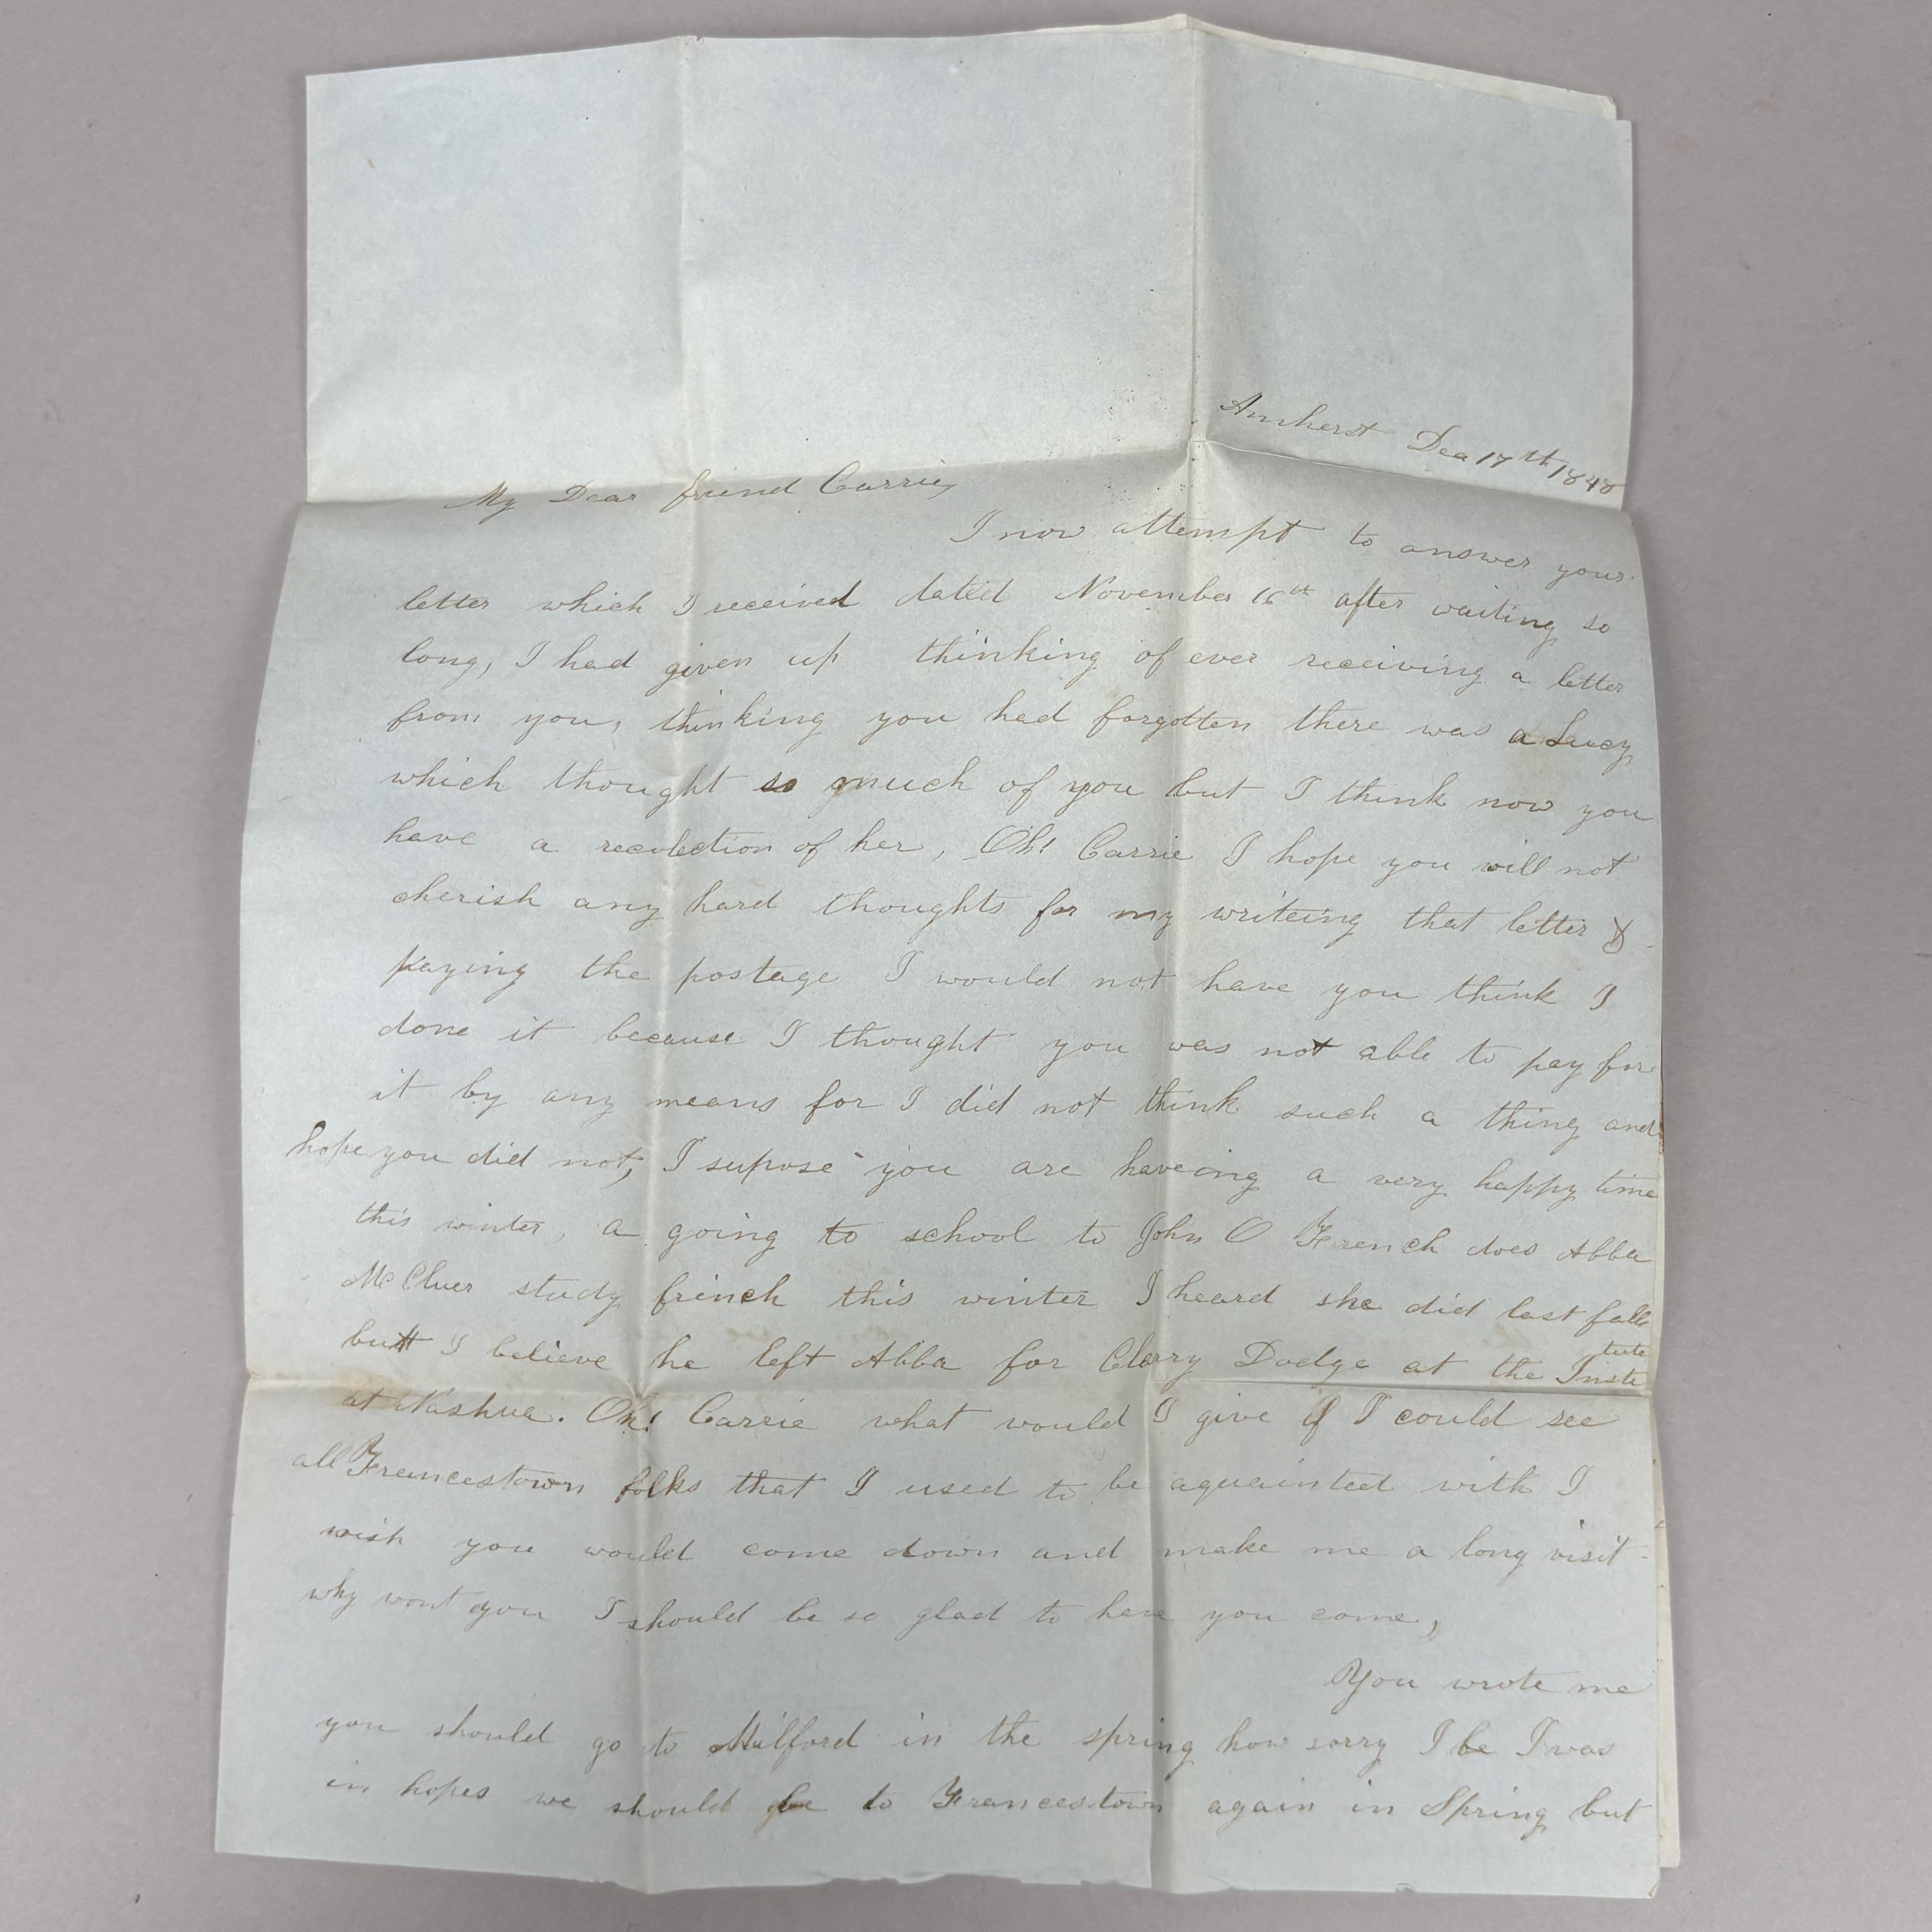 Amherst Dec 17th 1848
My Dear friend Carrie,
I now attempt to answer your
letter which I received dated November 16th after waiting so
long, I had given up thinking of ever receiving a letter
from you, thinking you had forgotten there was a Lucy
which thought so much of you but I think now you
have a recolection of her, Oh! Carrie I hope you will not
cherish any hard thoughts for my writeing that letter &
paying the postage I would not have you think I
done it because I thought you was not able to pay for
it by any means for I did not think such a thing and
hope you did not, I supose you are haveing a very happy time
this winter, a going to school to John O French does Abba
McCluer study french this winter I heard she did last fall
but I believe he left Abba for Clarry Dodge at the Institute
at Nashua. Oh! Carrie what would I give if I could see
all Francestown folks that I used to be aquainted with I
wish you would come down and make me a long visit
why wont you I should be so glad to have you come,
You wrote me
you should go to Milford in the spring how sorry I be I was
in hopes we should be to Francestown again in Spring but